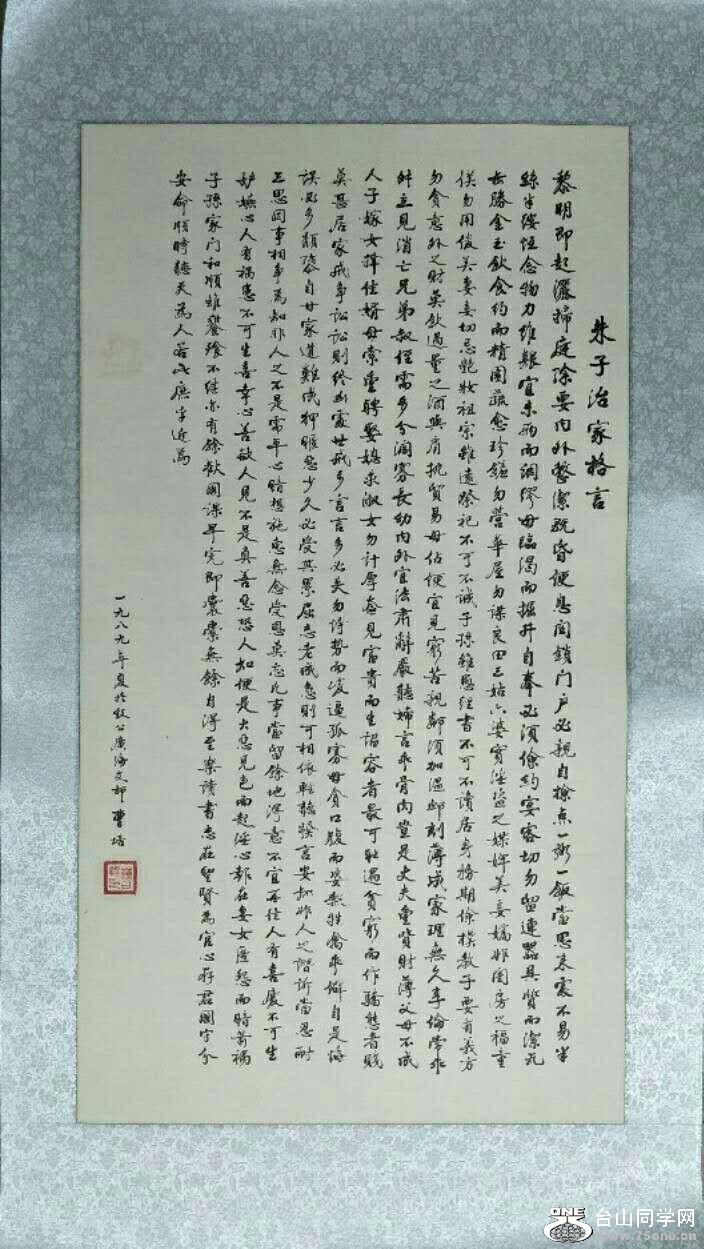 朱子治家格言
黎明即起灑掃庭除要内外整潔既昏便息関鎖门户必親自撿点一粥一飯當思来處不易半
絲半縷恒念物力维艱宜未雨而綢繆毋臨渴而掘井自奉必须儉約宴客切勿留連器具質而潔瓦
缶勝金玉飲食约而精園蔬愈珍饈勿營華屋勿谋良田三姑六婆實淫盗之媒婢美妾嬌非閨房之福童
僕勿用俊美妻妾切忌艶妝祖宗雖遠祭祀不可不誠子孫雖愚经書不可不讀居身務期儉樸教子要有義方
勿貪意外之財莫飲過量之酒與肩挑貿易毋佔便宜見窮苦親鄰须加温卹刻薄成家理無久享倫常乖
舛立見消亡兄弟叔侄需多分润寡長幼内外宜法肃辭嚴聽婦言乖骨肉豈是丈夫重資財薄父母不成
人子嫁女擇佳婿毋索重聘娶媳求淑女勿计厚奩見富貴而生諂容者最可耻遇貧窮而作驕態者賤
莫甚居家戒争訟訟則终凶處世戒多言言多必失勿恃势而凌逼孤寡毋貪口腹而恣殺牲禽乖僻自是悔
误必多頹惰自甘家道難成狎暱惡少久必受其累屈志老成急則可相依軽聽發言安知非人之譖訴當忍耐
三思因事相争焉知非人之不是需平心暗想施惠無念受恩莫忘凡事當留餘地得意不宜再往人有喜慶不可生
妒嫉心人有禍患不可生喜幸心善欲人見不是真善惡恐人知便是大惡見色而起淫心報在妻女匿怨而暗箭禍
子孫家门和順雖饔飱不继亦有餘歡國课早完即囊橐無餘自得至樂讀書志在聖賢為官心存君國守分
安命順時聽天為人若此庶乎近焉
一九八九年夏於
曹
台山同学网
www.75one.cn
ONE